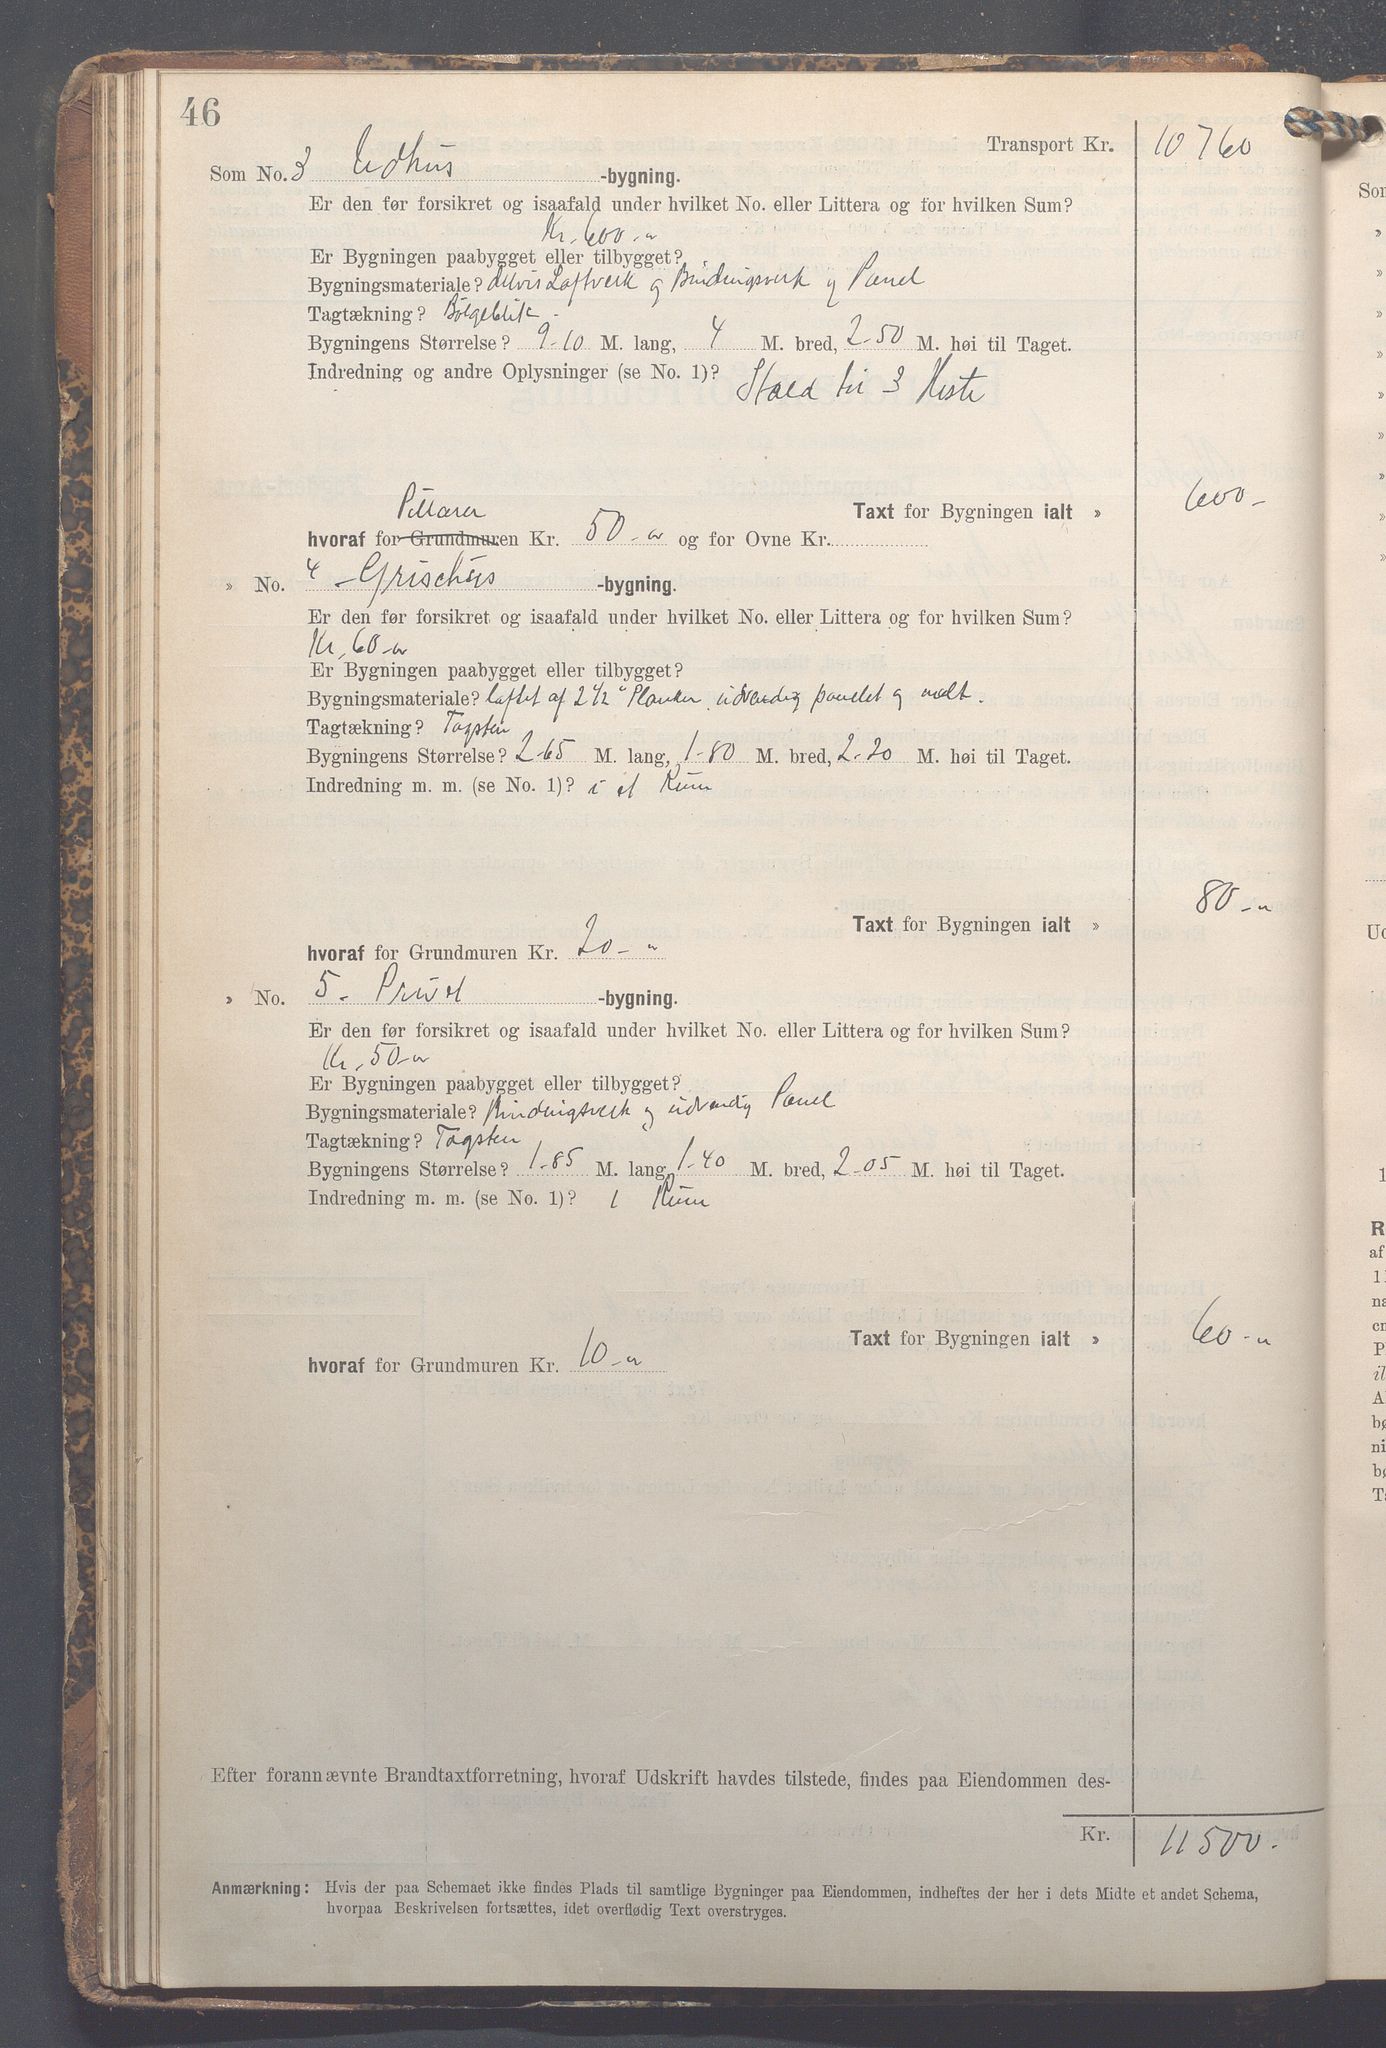 46
Transport Kr. 10 760
Som No. 3 Udhus -bygning.
Er den før forsikret og isaafald under hvilket No. eller Littera og for hvilken Sum?
Kr. 600 - "
Er Bygningen paabygget eller tilbygget?
Bygningsmateriale? delvis Laftverk og Bindingsverk og Panel
Tagtækning? Bölgeblik -
Bygningens Størrelse? 9-10 M. lang, 4 M. bred, 2-50 M. høi til Taget.
Indredning og andre Oplysninger (se No. 1)? Stald til 3 Heste
Taxt for Bygningen ialt » 600 -
Pillarer
hvoraf for Grundmuren Kr. 50 - " og for Ovne Kr.
» No. 4 - Grischus -bygning.
Er den før forsikret og isaafald under hvilket No. eller Littera og for hvilken Sum?
Kr. 60 - "
Er Bygningen paabygget eller tilbygget?
Bygningsmateriale? laftet af 2 1/2" Planker, udvendig panelet og malt.
Tagtækning? Tagsten
Bygningens Størrelse? 2-65 M. lang, 1-80 M. bred, 2-20 M. høi til Taget.
Indredning m. m. (se No. 1)? i et Rum
Taxt for Bygningen ialt » 80 - "
hvoraf for Grundmuren Kr. 20 - "
» No. 5 - Privet -bygning.
Er den før forsikret og isaafald under hvilket No. eller Littera og for hvilken Sum?
Kr. 50 - "
Er Bygningen paabygget eller tilbygget?
Bygningsmateriale? Bindingsverk og udvendig Panel
Tagtækning? Tagsten
Bygningens Størrelse? 1-85 M. lang, 1-40 M. bred, 2-05 M. høi til Taget.
Indredning m. m. (se No. 1)? 1 Rum
Taxt for Bygningen ialt » 60 - "
hvoraf for Grundmuren Kr. 10 - "
Efter forannævnte Brandtaxtforretning, hvoraf Udskrift havdes tilstede, findes paa Eiendommen des-
Kr. 11 500 -
Anmærkning: Hvis der paa Schemaet ikke findes Plads til samtlige Bygninger paa Eiendommen, indheftes der her i dets Midte et andet Schema,
hvorpaa Beskrivelsen fortsættes, idet overflødig Text overstryges.